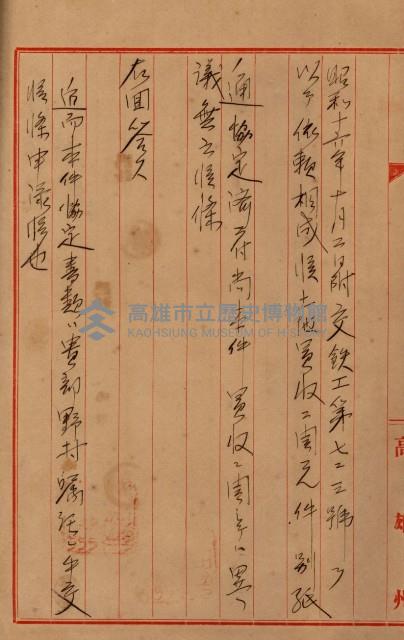 昭和十六年十月二日附交鉄工第七二三號ヲ
以テ依頼相成候土地買收ニ関スル件別紙
通協定濟ニ付尚本件買收ニ関シテハ異
議無之候條
右回答ス
追而本件協定書類ハ貴部野村囑託ニ手交
候條申添候也
高雄州
高雄市立歷史博物館
KAOHSIUNG MUSEUM OF HISTORY